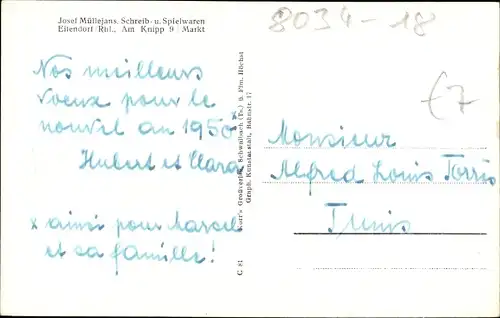 Josef Müllejans, Schreib- u. Spielwaren
Eilendorf/Rhl., Am Knipp 9/Markt
8034-18
€7
Nos meilleurs
voeux pour le
nouvel an 1950 x
Hubert et Clara
x ainsi pour Marcelle
et sa famille!
C 81
Graph. Kunstanstalt, Bahnstr. 17
Monsieur
Alfred Louis Torris
Tunis